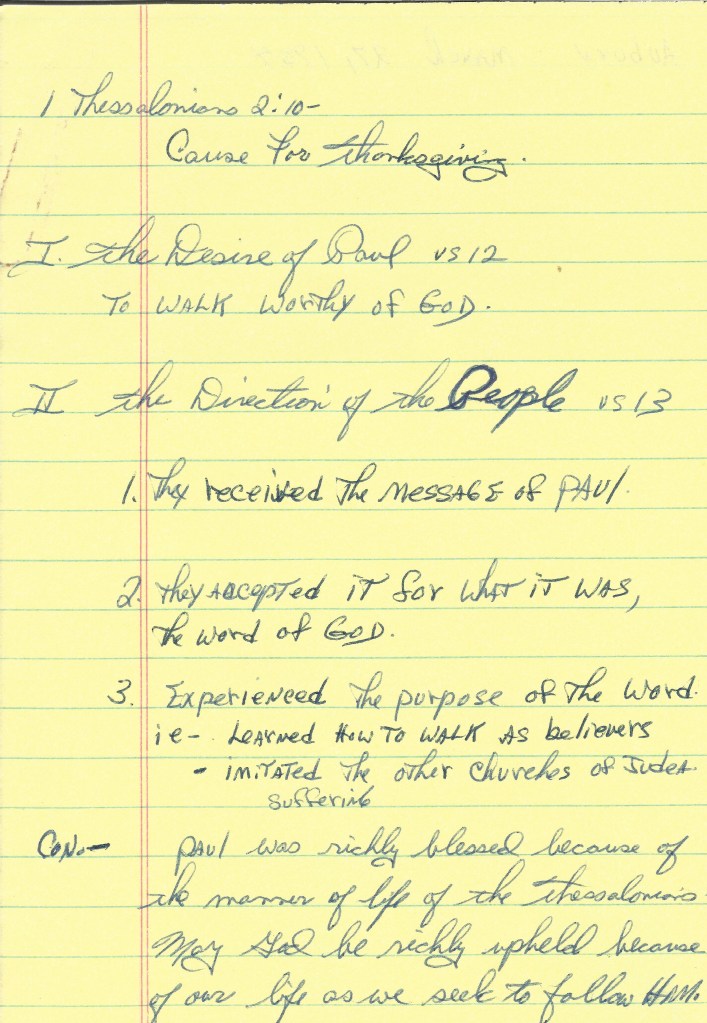 1 Thessalonians 2:10-
Cause For thanksgiving.
I. the Desire of Paul vs 12
TO WALK WorTHy of GOD.
II the Direction of the People vs 13
1. They received The MESSAGE of PAUL.
2. They Accepted IT for WHAT iT WAS,
The word of GOD.
3. Experienced The purpose of The Word.
ie- Learned How TO WALK AS believers
- imiTATed The other Churches of Judea.
suffering
Con.- PAUl was richly blessed because of
the manner of life of the thessalonians.
May God be richly upheld because
of our life as we seek to follow Him.